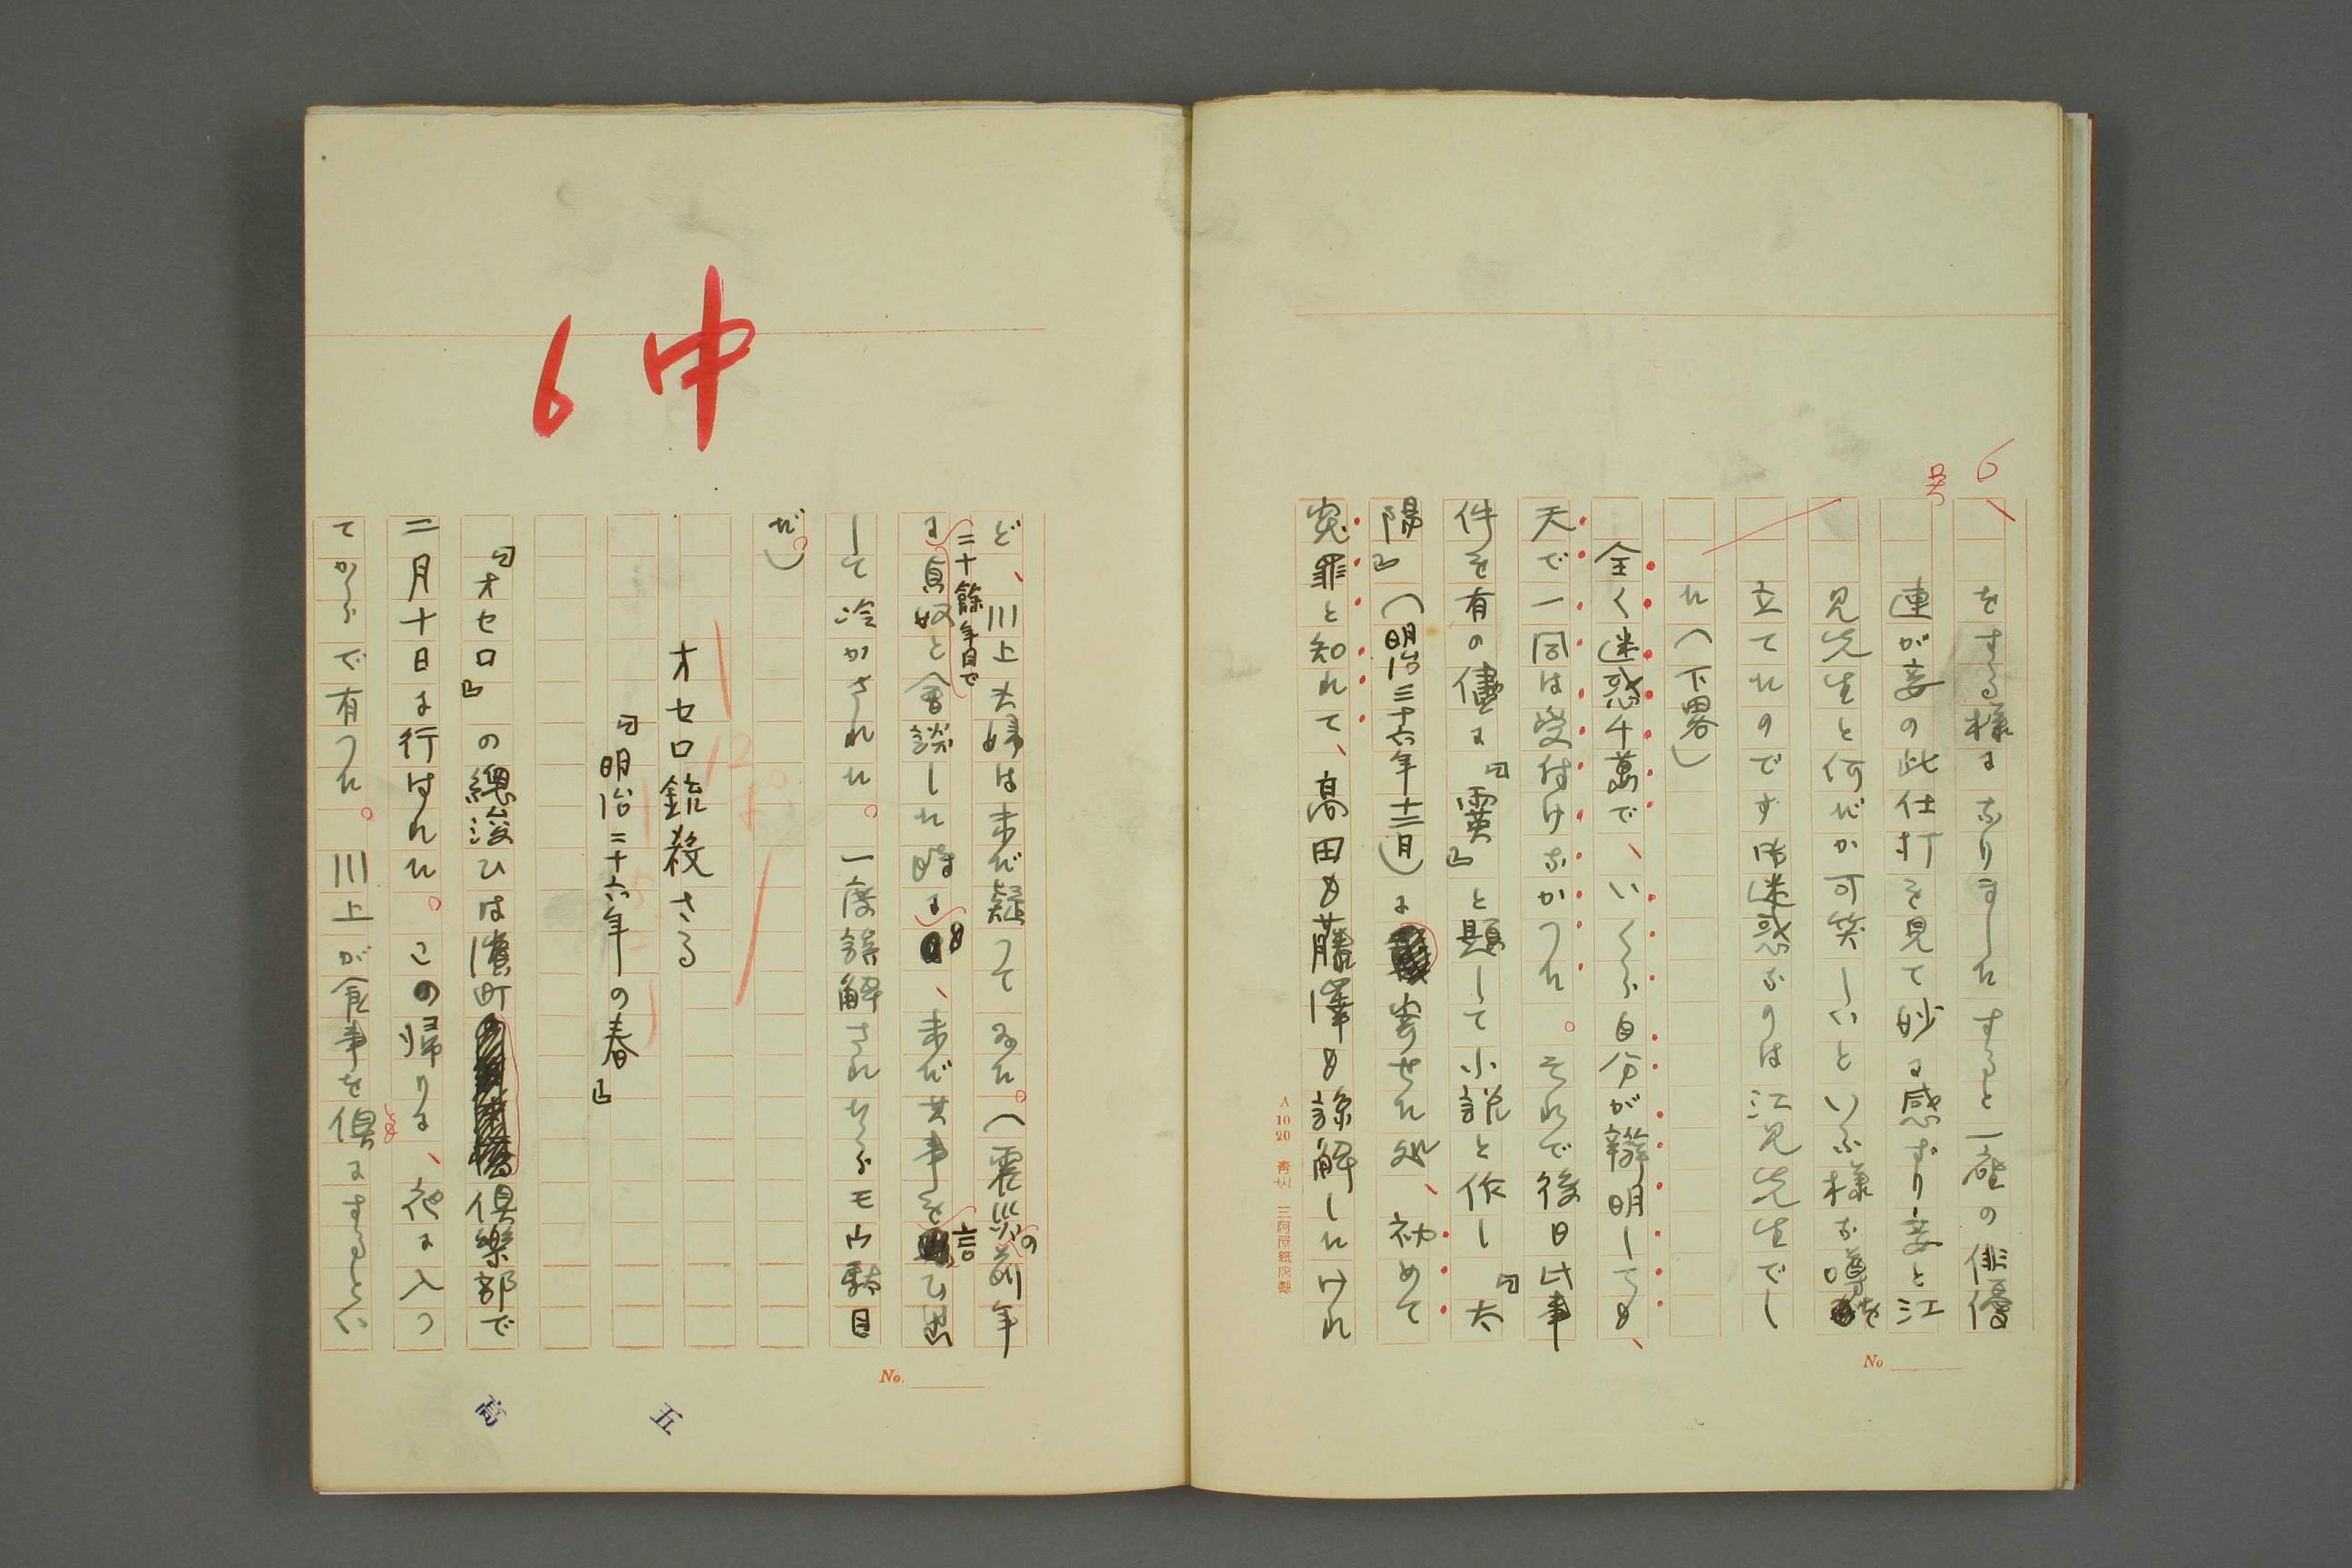 6
をする様になりましたすると一座の俳優
連が妾の此仕打を見て妙に感ずり妾と江
見先生と何だか可笑しいといふ様な噂を
立てたのです御迷惑なのは江見先生でし
た（下畧）
全く迷惑千萬で、いくら自分が辯明しても、
天で一同は受付けなかつた。それで後日此事
件を有の儘に『靈』と題して小説と作し『太
陽』（明治三十六年十二月）に寄せた処、初めて
冤罪と知れて、高田も藤澤も諒解したけれ
A 10 20
No
ど、川上夫婦は未だ疑つてゐた。（震災の翌年
に貞奴と二十餘年目で會談した時にも、未だ其事を言ひ出
して冷かされた。一度誤解されたらモウ駄目
だ）
オセロ銃殺さる
『明治三十六年の春』
『オセロ』の總浚ひは濱町倶樂部で
二月十日に行はれた。この帰りに、花に入つ
てからで有つた。川上が食事を倶にするとい
中
6
No.
五
高